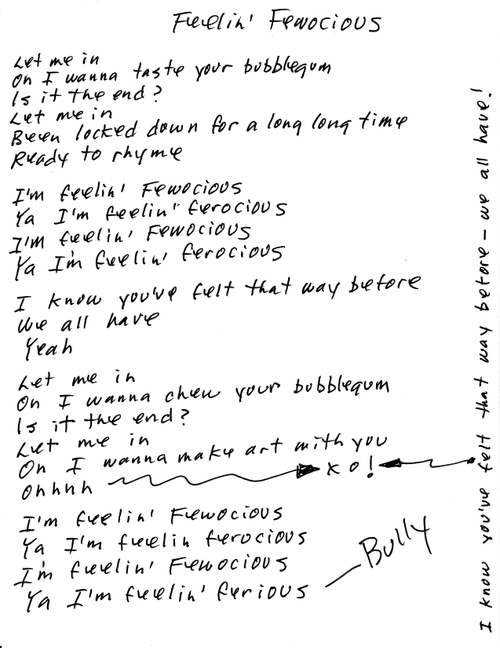 Feelin' Fewocious
Let me in
Oh I wanna taste your bubblegum
Is it the end?
Let me in
Been locked down for a long long time
Ready to rhyme
I'm feelin' Fewocious
Ya I'm feelin' ferocious
I'm feelin' Fewocious
Ya I'm feelin' ferocious
I know you've felt that way before
We all have
Yeah
Let me in
Oh I wanna chew your bubblegum
Is it the end?
Let me in
Oh I wanna make art with you
Ohhhh
xo!
I'm feelin' Fewocious
Ya I'm feelin ferocious
I'm feelin' Fewocious
Ya I'm feelin' ferious
Bully
I know you've felt that way before - we all have!